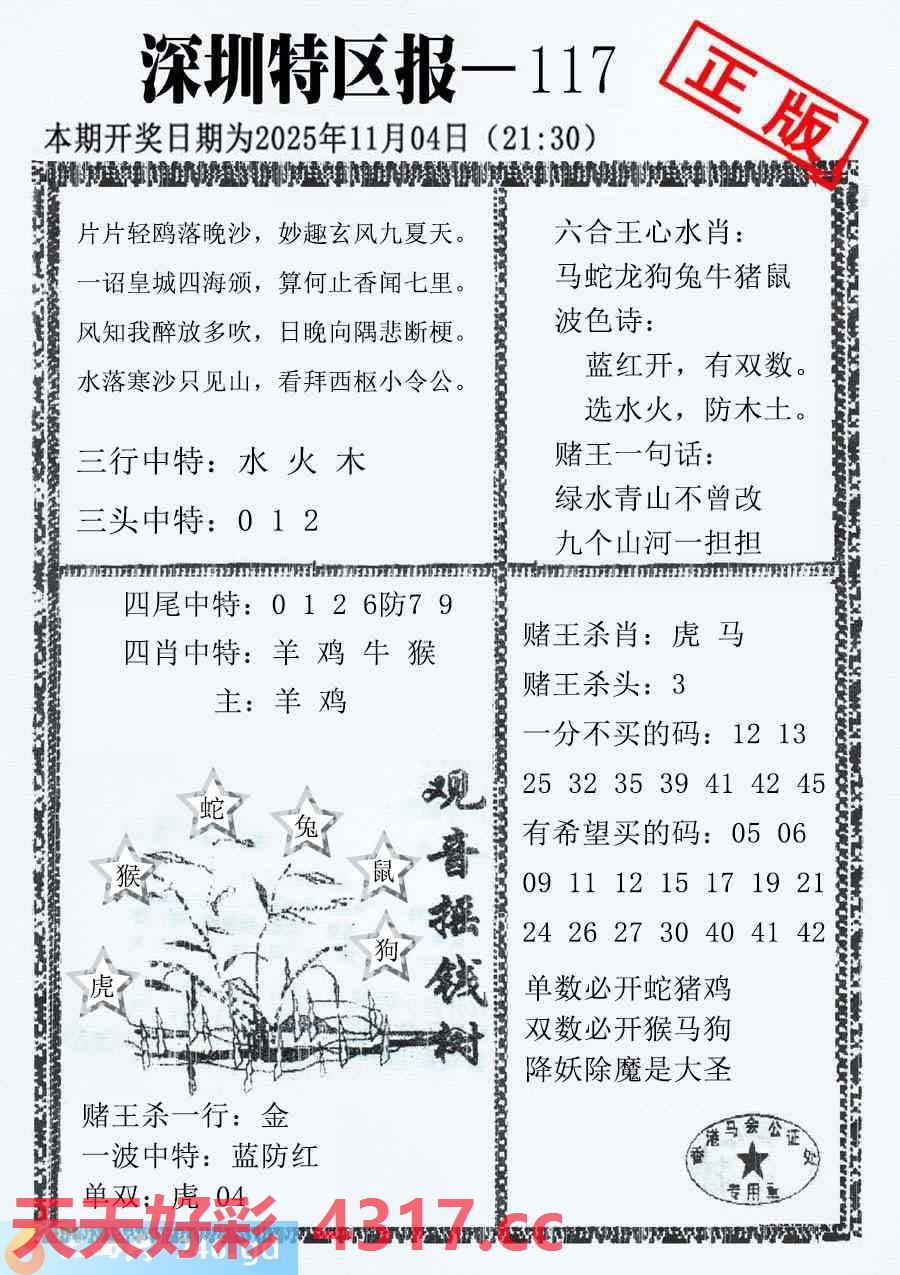 深圳特区报—117
正版
本期开奖日期为2025年11月04日（21:30）
片片轻鸥落晚沙，妙趣玄风九夏天。
一诏皇城四海颁，算何止香闻七里。
风知我醉放多吹，日晚向隅悲断梗。
水落寒沙只见山，看拜西枢小令公。
三行中特：水 火 木
三头中特：0 1 2
六合王心水肖：
马蛇龙狗兔牛猪鼠
波色诗：
蓝红开，有双数。
选水火，防木土。
赌王一句话：
绿水青山不曾改
九个山河一担担
四尾中特：0 1 2 6防7 9
四肖中特：羊 鸡 牛 猴
主：羊 鸡
蛇
兔
猴
鼠
狗
虎
观音摇钱树
赌王杀一行：金
一波中特：蓝防红
单双：虎 04
赌王杀肖：虎 马
赌王杀头：3
一分不买的码：12 13
25 32 35 39 41 42 45
有希望买的码：05 06
09 11 12 15 17 19 21
24 26 27 30 40 41 42
单数必开蛇猪鸡
双数必开猴马狗
降妖除魔是大圣
香港马会公证处
专用章
天天好彩 4317.cc